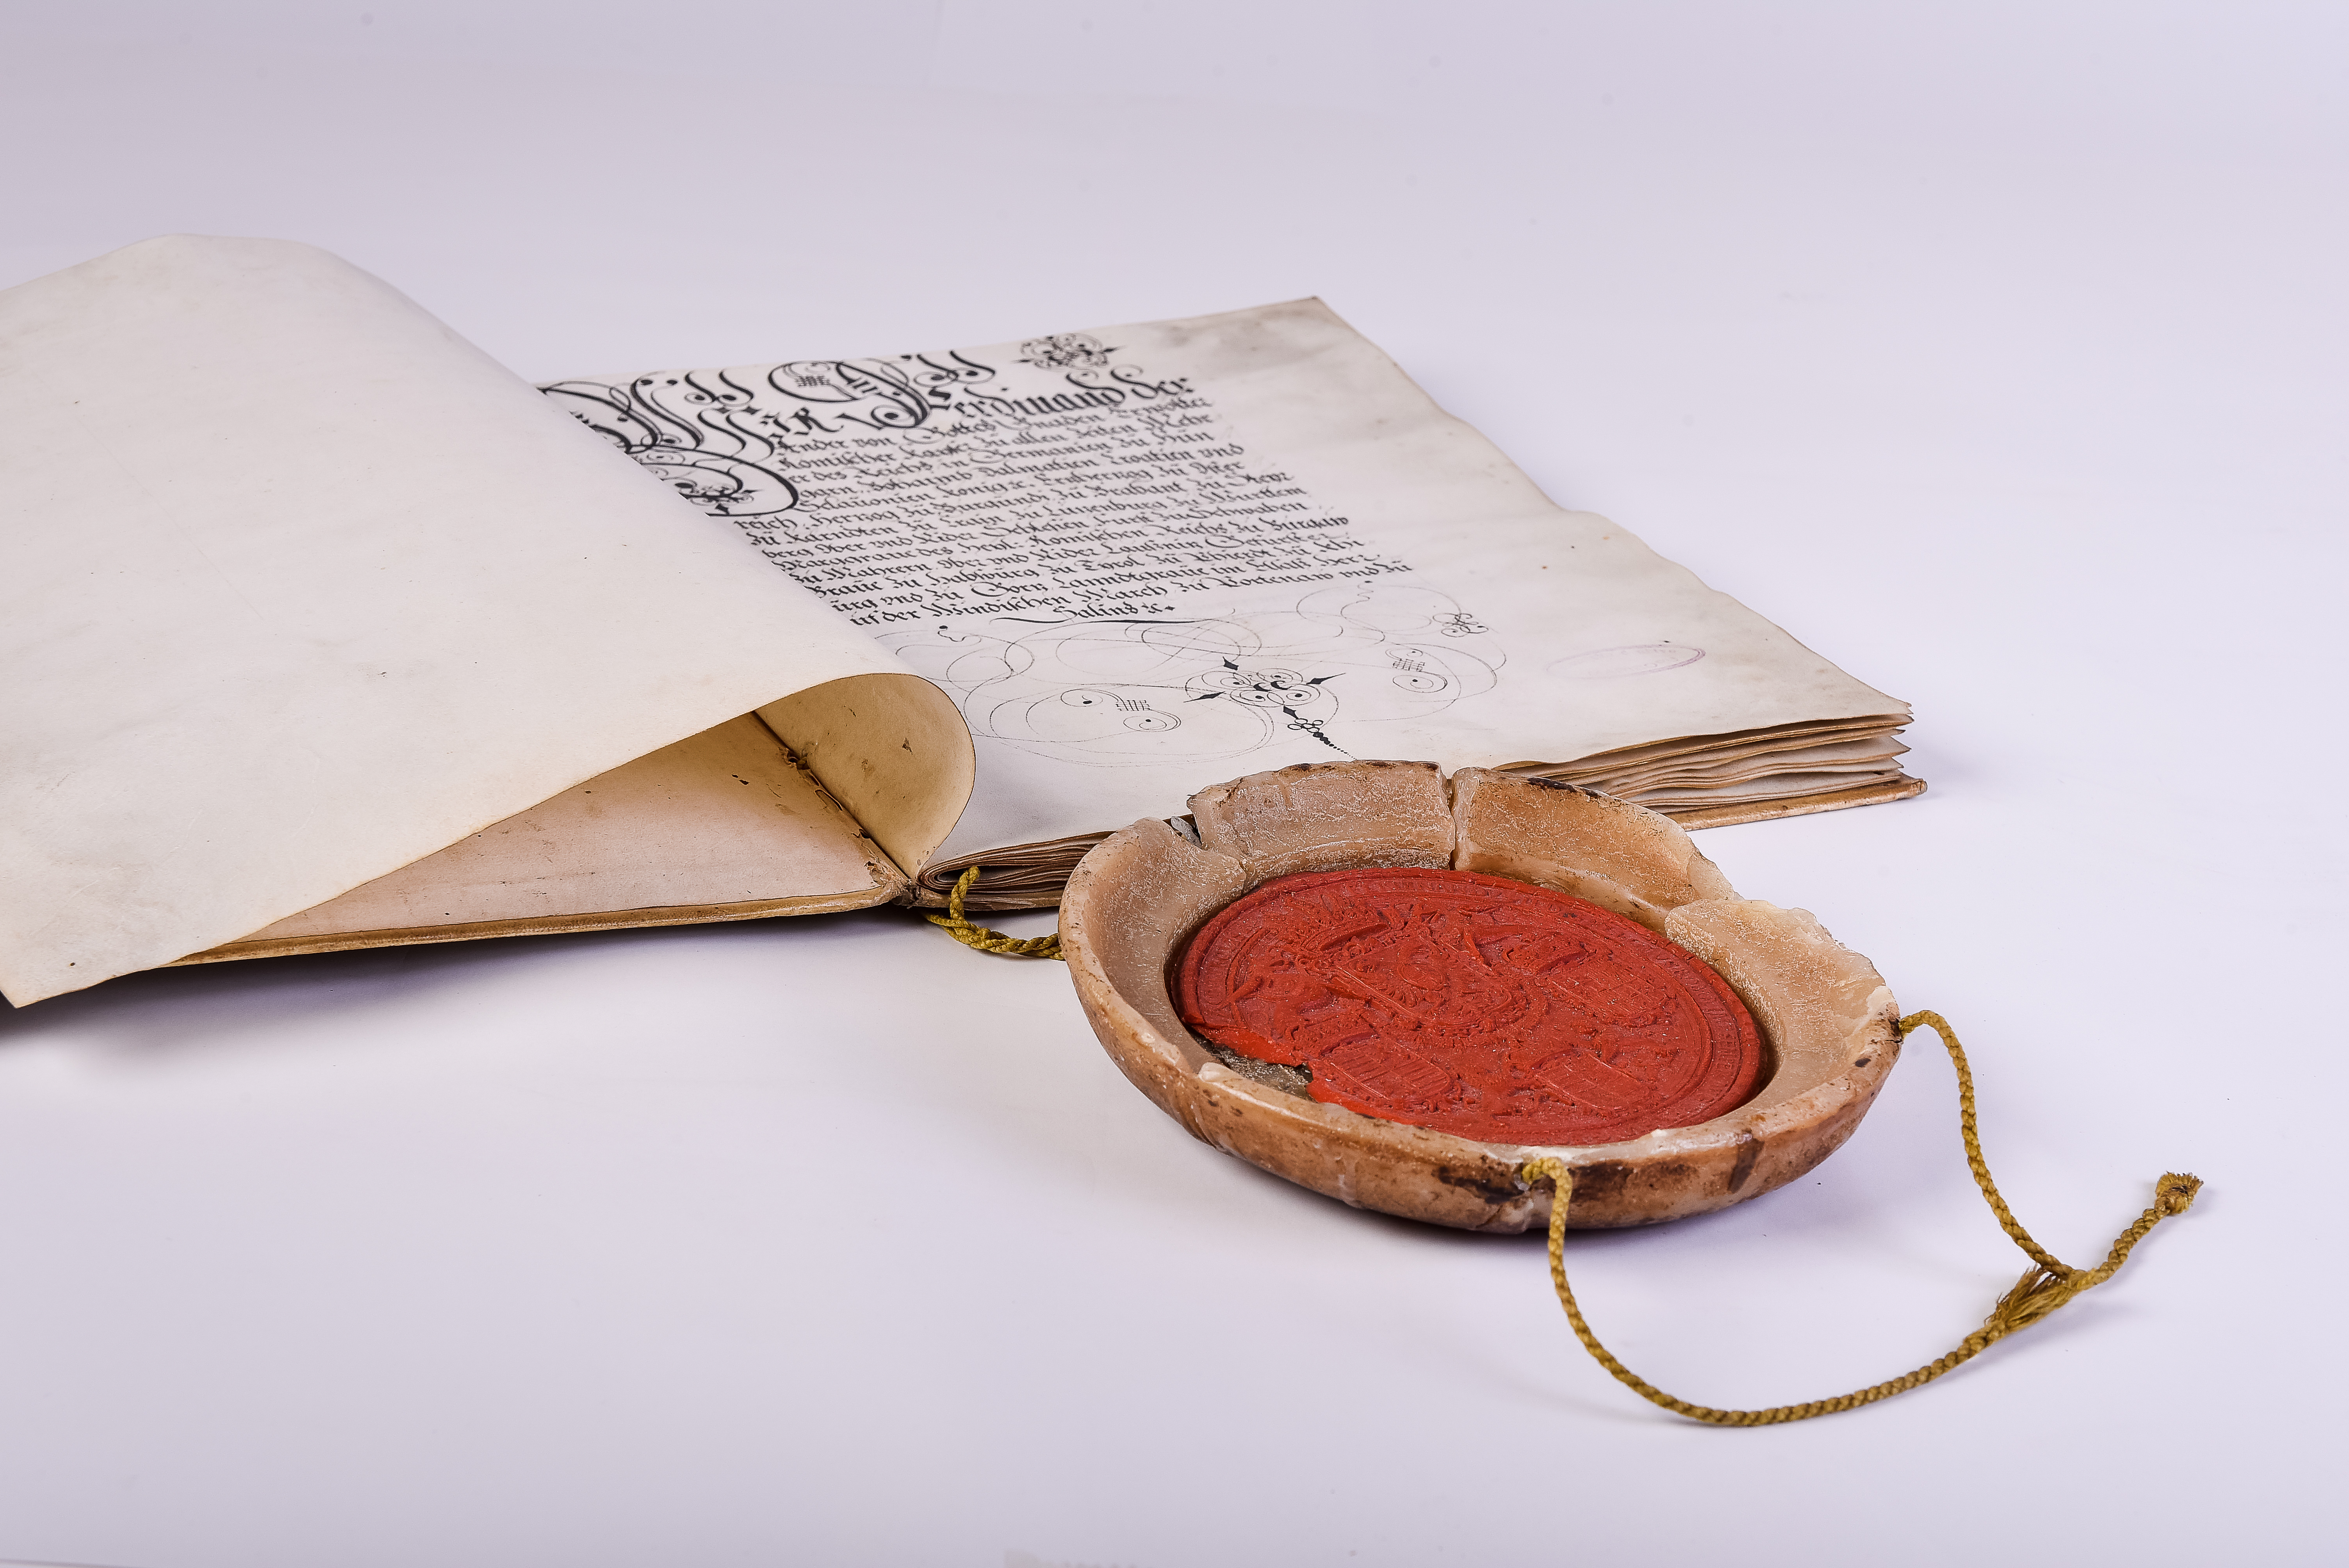 WIR Ferdinand der
Ander von Gottes Gnaden Erwölter
Römischer Kayser Zu allen Zeiten Mehr
er des Reichs in Germanien Zu Hün
garn Böhaimb Dalmatien Croatien vnd
Sclavonien König &c. Ertzherzog Zu Öster
reich Hertzog Zu Burgundi Zu Brabant Zu Steyr
Zu Kärnten Zu Crain Zu Württem
berg Ober vnd Nider Schlesien Fürst Zu Schwaben
Marggraue des Heyl: Römischen Reichs Zu Burgaw
Zu Mährern Ober vnd Nider Laußnitz Gefürster
Graue Zu Habspurg Zu Tyrol Zu Phierdt Zu Khi
burg vnd Zu Görtz Lanndtgraue im Elsaß Herr
uf der Windischen March Zu Portenaw vnd Zu
Salins &c.